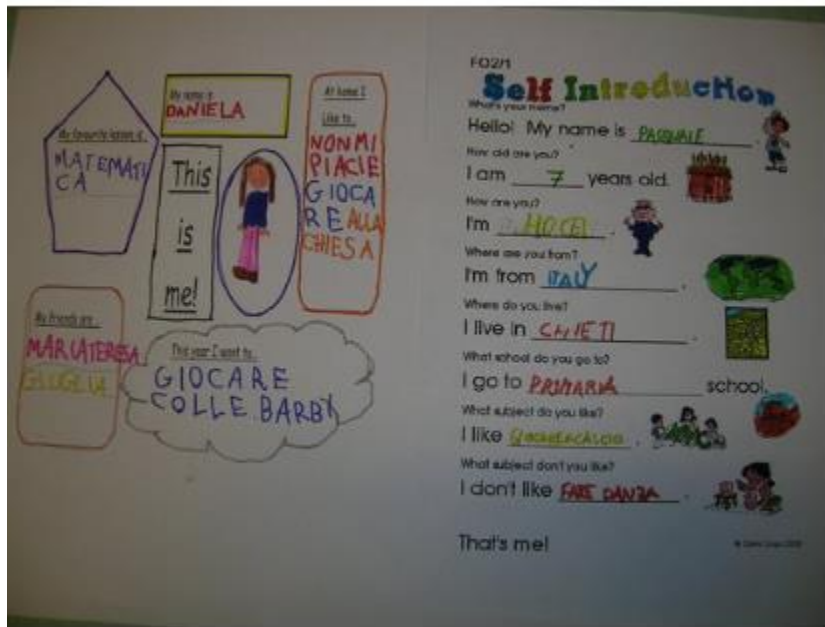 My favourite lesson is
MATEMATI
CA
My name is
DANIELA
This
is
me!
At home I
like to
NON MI
PIACIE
GIOCA
RE ALLA
CHIESA
My friends are
MARIATERESA
GIUGLIA
This year I want to
GIOCARE
COLLE BARBY
FO2/1
Self Introduction
What's your name?
Hello! My name is PASQUALE
How old are you?
I am 7 years old.
How are you?
I'm
Where are you from?
I'm from ITALY.
Where do you live?
I live in CHIETI.
What school do you go to?
I go to PRIMARIA school.
What subject do you like?
I like
What subject don't you like?
I don't like FARE DANZA.
That's me!